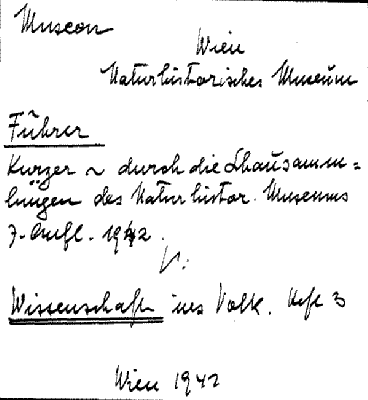 Museen
Wien
Naturhistorisches Museum
Führer
Kurzer ~ durch die Schausamm=
lungen des Naturhistor. Museums
7. Aufl. 1942.
V:
Wissenschaft ins Volk. Heft 3
Wien 1942